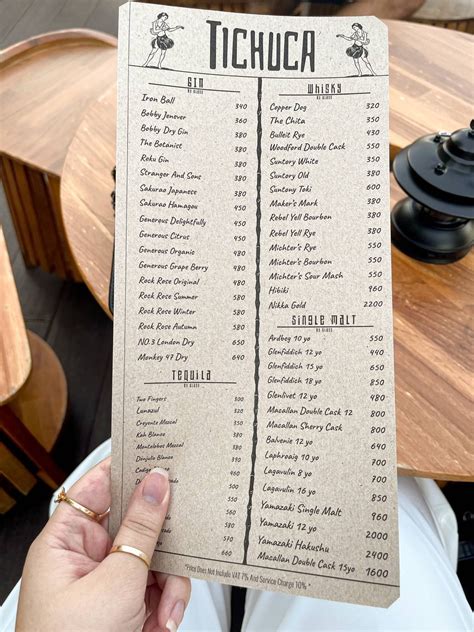 TICHUCA
GIN
BY GLASS
Iron Ball 340
Bobby Jenever 360
Bobby Dry Gin 380
The Botanist 380
Roku Gin 380
Stranger And Sons 380
Sakurao Japanese 380
Sakurao Hamagou 450
Generous Delightfully 450
Generous Citrus 450
Generous Organic 450
Generous Grape Berry 450
Rock Rose Original 480
Rock Rose Summer 580
Rock Rose Winter 580
Rock Rose Autumn 580
NO.3 London Dry 650
Monkey 47 Dry 640
TEQUILA
BY GLASS
Two Fingers 300
Lunazul
Creyente Mezcal 380
Kah Blanco
Montelobos Mezcal 380
Dinjulo Blanco 380
460
500
550
550
600
660
WHISKY
BY GLASS
Copper Dog 320
The Chita 350
Bulleit Rye 430
Woodford Double Cask 550
Suntory White 350
Suntory Old 380
Suntony Toki 380
Maker's Mark 380
Rebel Yell Bourbon 380
Rebel Yell Rye 380
Michter's Rye 550
Michter's Bourbon 550
Michter's Sour Mash 550
Hibiki 960
Nikka Gold 2200
SINGLE MALT
BY GLASS
Ardbeg 10 yo 550
Glenfiddich 12 yo 440
Glenfiddich 15 yo 650
Glenfiddich 18 yo 850
Glenlivet 12 yo 400
Macallan Double Cask 12 800
Macallan Sherry Cask 800
Balvenie 12 yo 640
Laphroaig 10 yo 700
Lagavulin 8 yo 700
Lagavulin 16 yo 850
Yamazaki Single Malt 960
Yamazaki 12 yo 2000
Yamazaki Hakushu 2400
Macallan Double Cask 15yo 1600
*Price Does Not Include VAT 7% And Service Charge 10% *